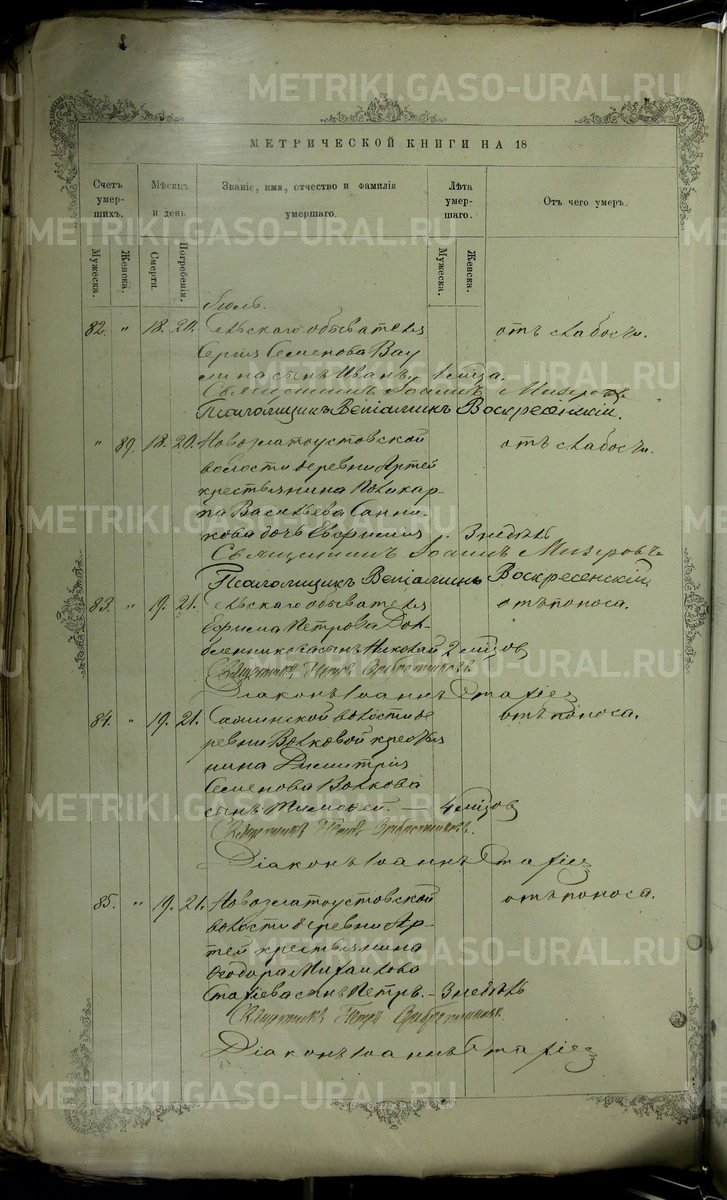 МЕТРИЧЕСКОЙ КНИГИ НА 18
Счетъ умершихъ.
Мужеска.
Женска.
Мѣсяцъ и день
Смерти.
Погребенія.
Званіе, имя, отчество и фамилія умершаго.
Лѣта умершаго.
Мужеска.
Женска.
Отъ чего умеръ.
Іюль.
82. " 18. 20. Сельскаго обывателя отъ слабости.
Сергія Семенова Вау
лина сынъ Иванъ, 1 мѣсяца.
Священникъ Іоаннъ Мизеровъ
Псаломщикъ Веніаминъ Воскресенскій.
" 89. 18. 20. Новозлатоустовской отъ слабости.
волости деревни Артей
крестьянина Поликар-
па Васильева Санни-
кова дочь Евфимія. 3 недѣль
Священникъ Іоаннъ Мизеровъ
Псаломщикъ Веніаминъ Воскресенскій
83. " 19. 21. Сельскаго обывателя отъ поноса.
Ефима Петрова
сынъ Николай 2 мѣсяцовъ
Священникъ Петръ
Діаконъ Іоаннъ Стафіев
84. " 19. 21. волости де отъ поноса.
ревни Волковой крестья
нина Димитрія
Семенова Волкова
сынъ Тимофей. — 4 мѣсяцовъ
Священникъ Петръ
Діаконъ Іоаннъ Стафіев
85. " 19. 21. Новозлатоустовской отъ поноса.
волости деревни Ар-
тей крестьянина
Ѳеодора Михайлова
Стафіева сынъ Петръ. — 3 недѣль
Священникъ Петръ
Діаконъ Іоаннъ Стафіев
METRIKI.GASO-URAL.RU